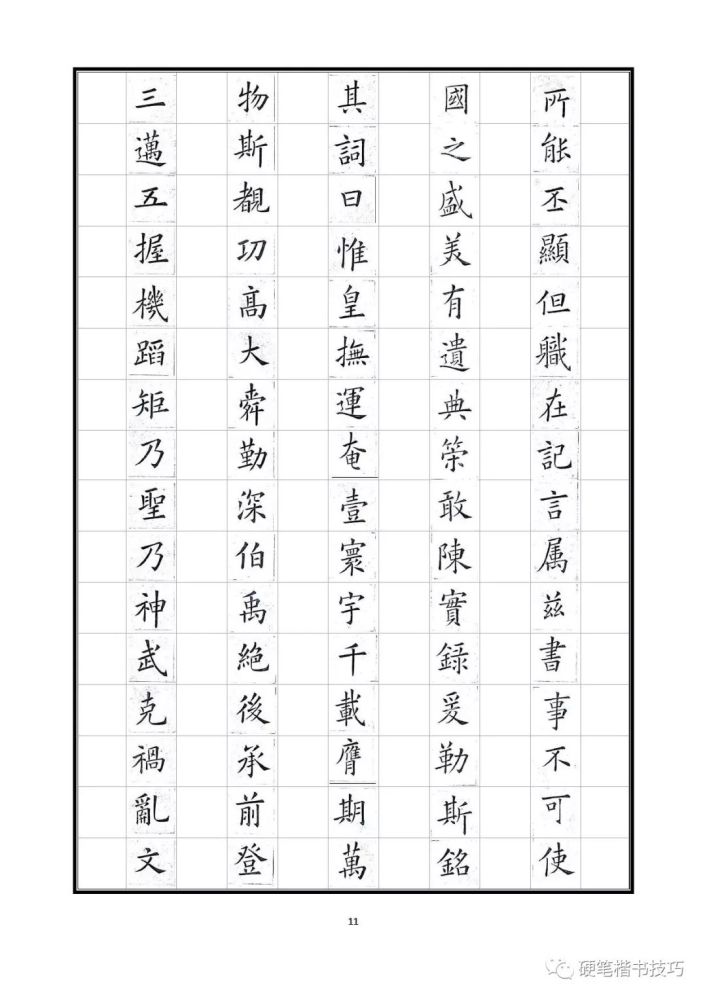 所能丕顯但職在記言属兹書事不可使
國之盛美有遺典策敢陳實録爰勒斯銘
其詞曰惟皇撫運奄壹寰宇千載膺期萬
物斯覩功髙大舜勤深伯禹絶後承前登
三邁五握機蹈矩乃聖乃神武克禍亂文
11
硬笔楷书技巧